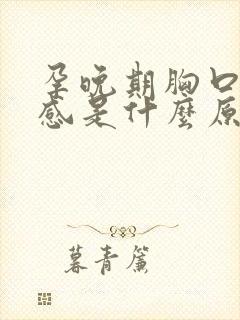 孕晚期胸口
感是什麼原
暮青簾